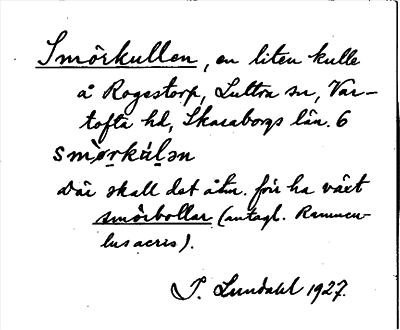 Smörkullen, en liten kulle
å Rogestorp, Luttra sn, Var-
tofta hd, Skaraborgs län. 6
smörkúlən
där skall det åtm. förr ha växt
smörbollar (antagl. Ranuncu-
lus acris).
I. Lundahl 1927.